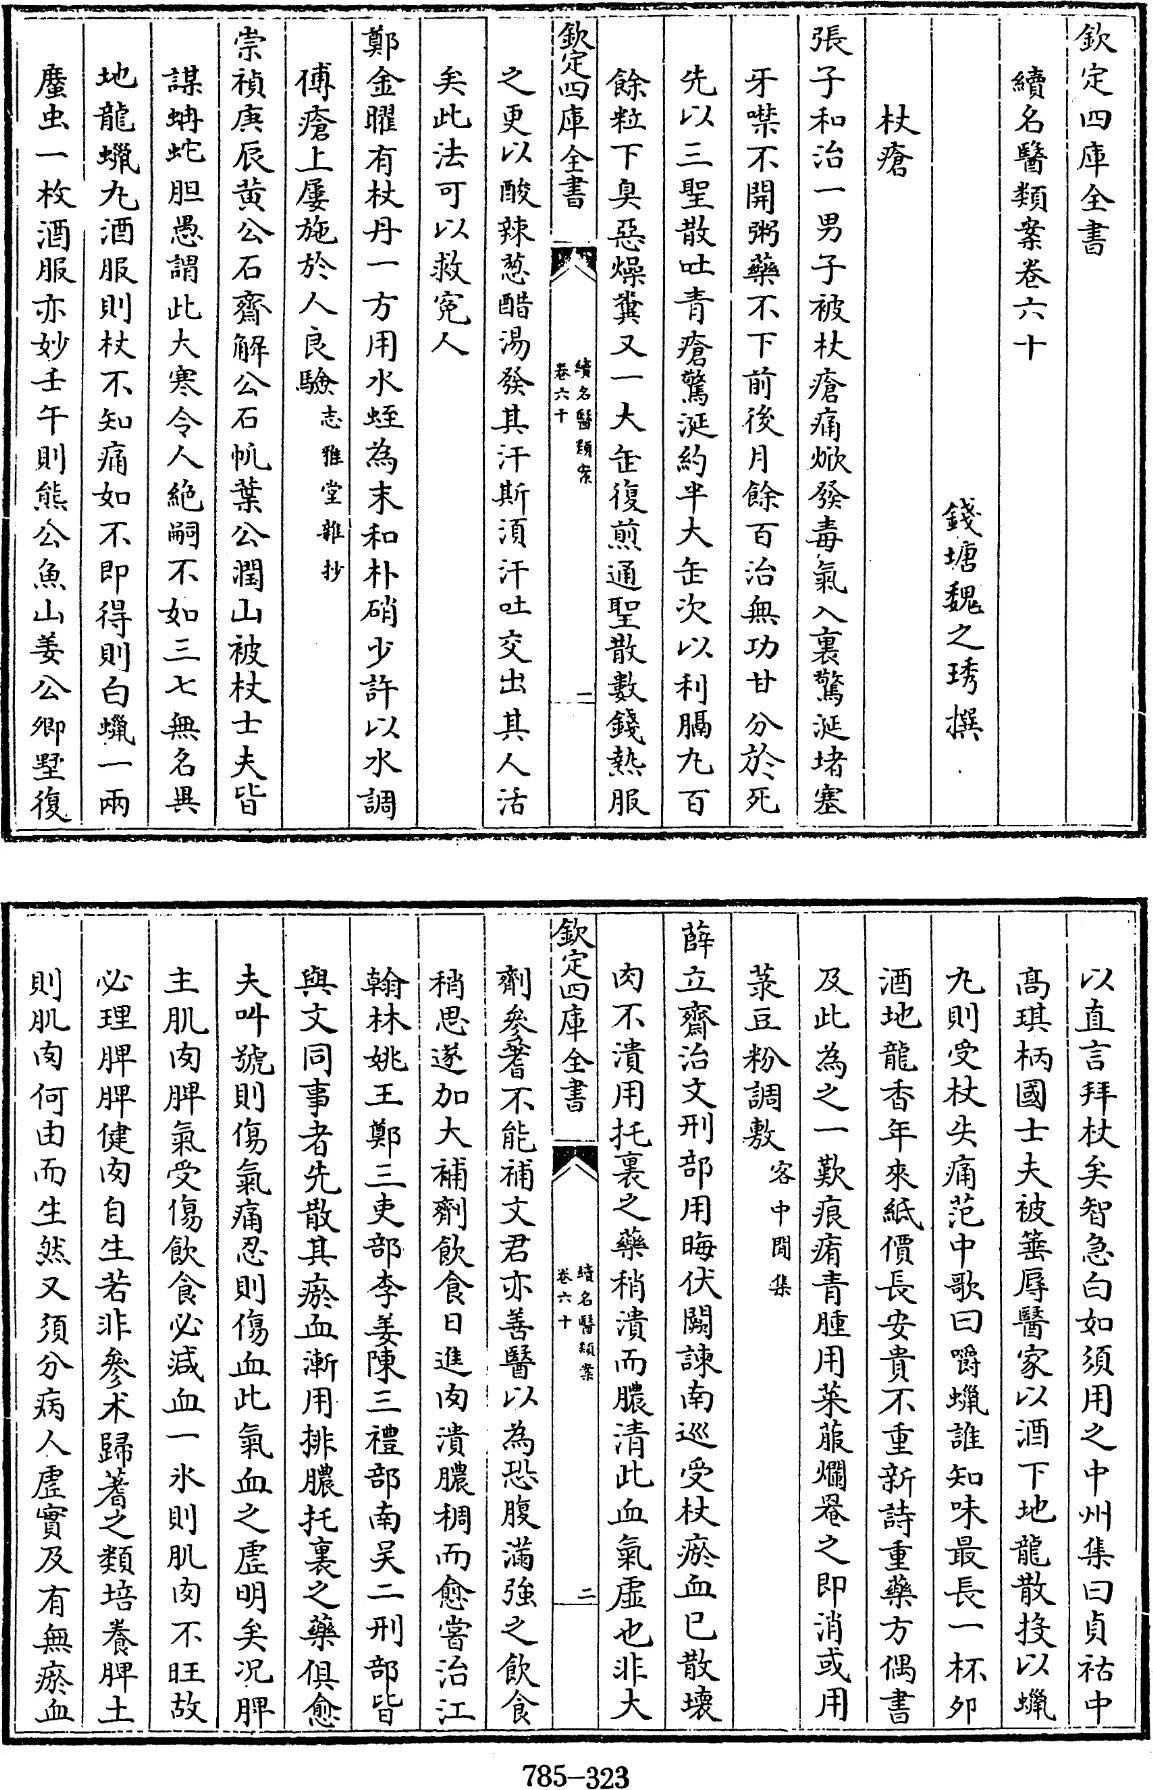 欽定四庫全書
續名醫類案卷六十
錢塘魏之琇撰
杖瘡
張子和治一男子被杖瘡痛焮發毒氣入裏驚涎堵塞
牙噤不開粥藥不下前後月餘百治無功甘分於死
先以三聖散吐青瘡驚涎約半大缶次以利膈丸百
餘粒下臭惡燥糞又一大缶復煎通聖散數錢熱服
欽定四庫全書
續名醫類案
卷六十
二
之更以酸辣葱醋湯發其汗斯須汗吐交出其人活
矣此法可以救寃人
鄭金曜有杖丹一方用水蛭為末和朴硝少許以水調
傅瘡上屢施於人良驗志雅堂雜抄
崇禎庚辰黄公石齋解公石帆葉公潤山被杖士夫皆
謀蚺蛇胆愚謂此大寒令人絶嗣不如三七無名異
地龍蠟丸酒服則杖不知痛如不即得則白蠟一兩
䗪虫一枚酒服亦妙壬午則熊公魚山姜公卿墅復
以直言拜杖矣智急白如須用之中州集曰貞祐中
髙琪柄國士夫被箠辱醫家以酒下地龍散投以蠟
丸則受杖失痛范中歌曰嚼蠟誰知味最長一杯夘
酒地龍香年來紙價長安貴不重新詩重藥方偶書
及此為之一歎痕痏青腫用萊菔爛罨之即消或用
菉豆粉調敷客中閒集
薛立齋治文刑部用晦伏闕諫南巡受杖瘀血已散壞
肉不潰用托裏之藥稍潰而膿清此血氣虛也非大
欽定四庫全書
續名醫類案
卷六十
二
劑參蓍不能補文君亦善醫以為恐腹滿強之飲食
稍思遂加大補劑飲食日進肉潰膿稠而愈嘗治江
翰林姚王鄭三吏部李姜陳三禮部南吴二刑部皆
與文同事者先散其瘀血漸用排膿托裏之藥俱愈
夫叫號則傷氣痛忍則傷血此氣血之虛明矣况脾
主肌肉脾氣受傷飲食必減血一氷則肌肉不旺故
必理脾脾健肉自生若非參术歸蓍之類培養脾土
則肌肉何由而生然又須分病人虛實及有無瘀血
785-323